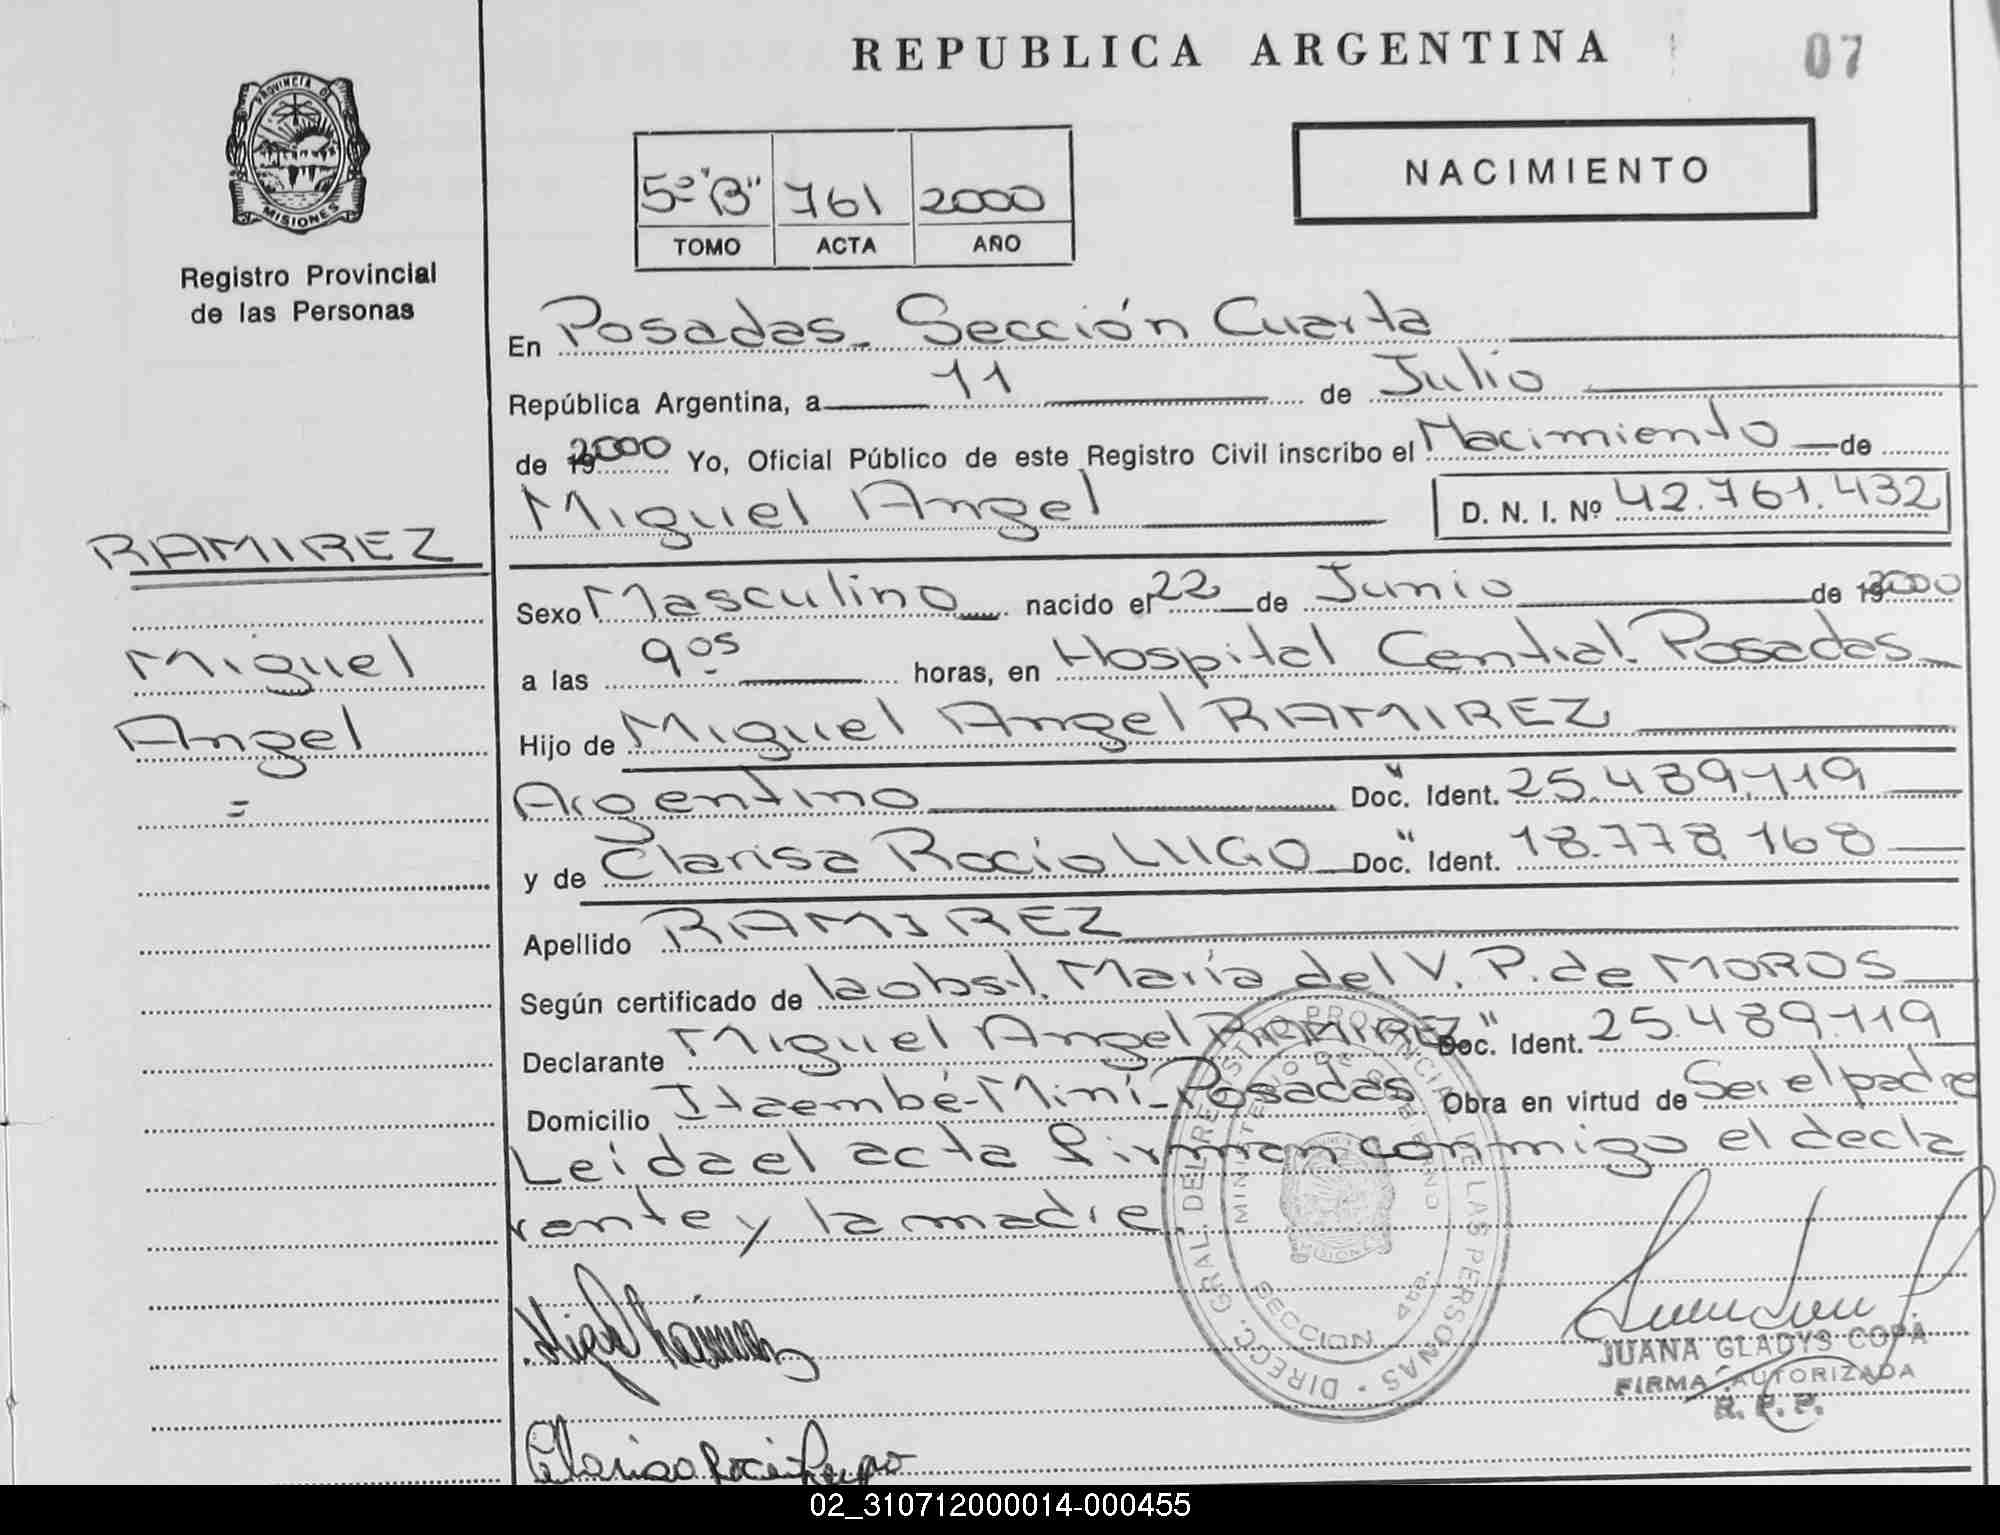 REPUBLICA ARGENTINA
07
PROVINCIA DE
MISIONES
Registro Provincial
de las Personas
5º "B" 761 2000
TOMO ACTA AÑO
NACIMIENTO
En Posadas - Sección Cuarta
República Argentina, a 11 de Julio
de 2000 Yo, Oficial Público de este Registro Civil inscribo el Nacimiento de
Miguel Angel D. N. I. Nº 42.761.432
RAMIREZ
Miguel
Angel
=
Sexo Masculino nacido el 22 de Junio de 2000
a las 9 05 horas, en Hospital Central. Posadas
Hijo de Miguel Angel RAMIREZ
Argentino Doc. Ident. 25.489.119
y de Clarisa Rocío LUGO Doc. Ident. 18.778.168
Apellido RAMIREZ
Según certificado de la obst. María del V. P. de MOROS
Declarante Miguel Angel RAMIREZ Doc. Ident. 25.489.119
Domicilio Itaembé-Miní-Posadas Obra en virtud de Ser el padre
Leída el acta firman conmigo el decla
rante y la madre.
DIRECC. GRAL. DEL REGISTRO PROVINCIAL DE LAS PERSONAS
MINISTERIO DE GOBIERNO
MISIONES
SECCION 4ta.
JUANA GLADYS COPA
FIRMA AUTORIZADA
R. P. P.
Clarisa Rocío Lugo
02_310712000014-000455